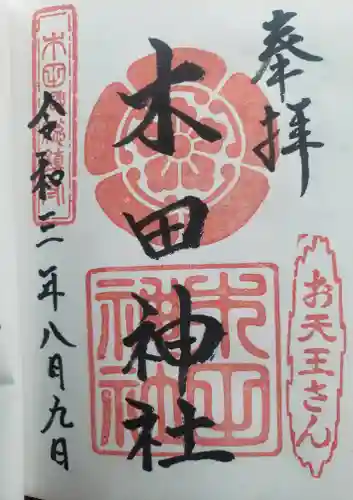 奉拝
お天王さん
木田神社
木田神社
令和三年八月九日